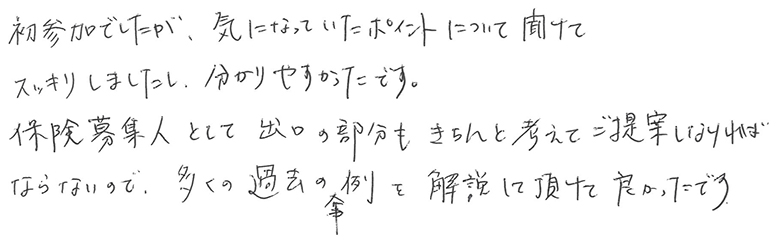 初参加でしたが、気になっていたポイントについて聞けて
スッキリしましたし、分かりやすかったです。
保険募集人として出口の部分もきちんと考えてご提案しなければ
ならないので、多くの過去の事例を解説して頂けて良かったです